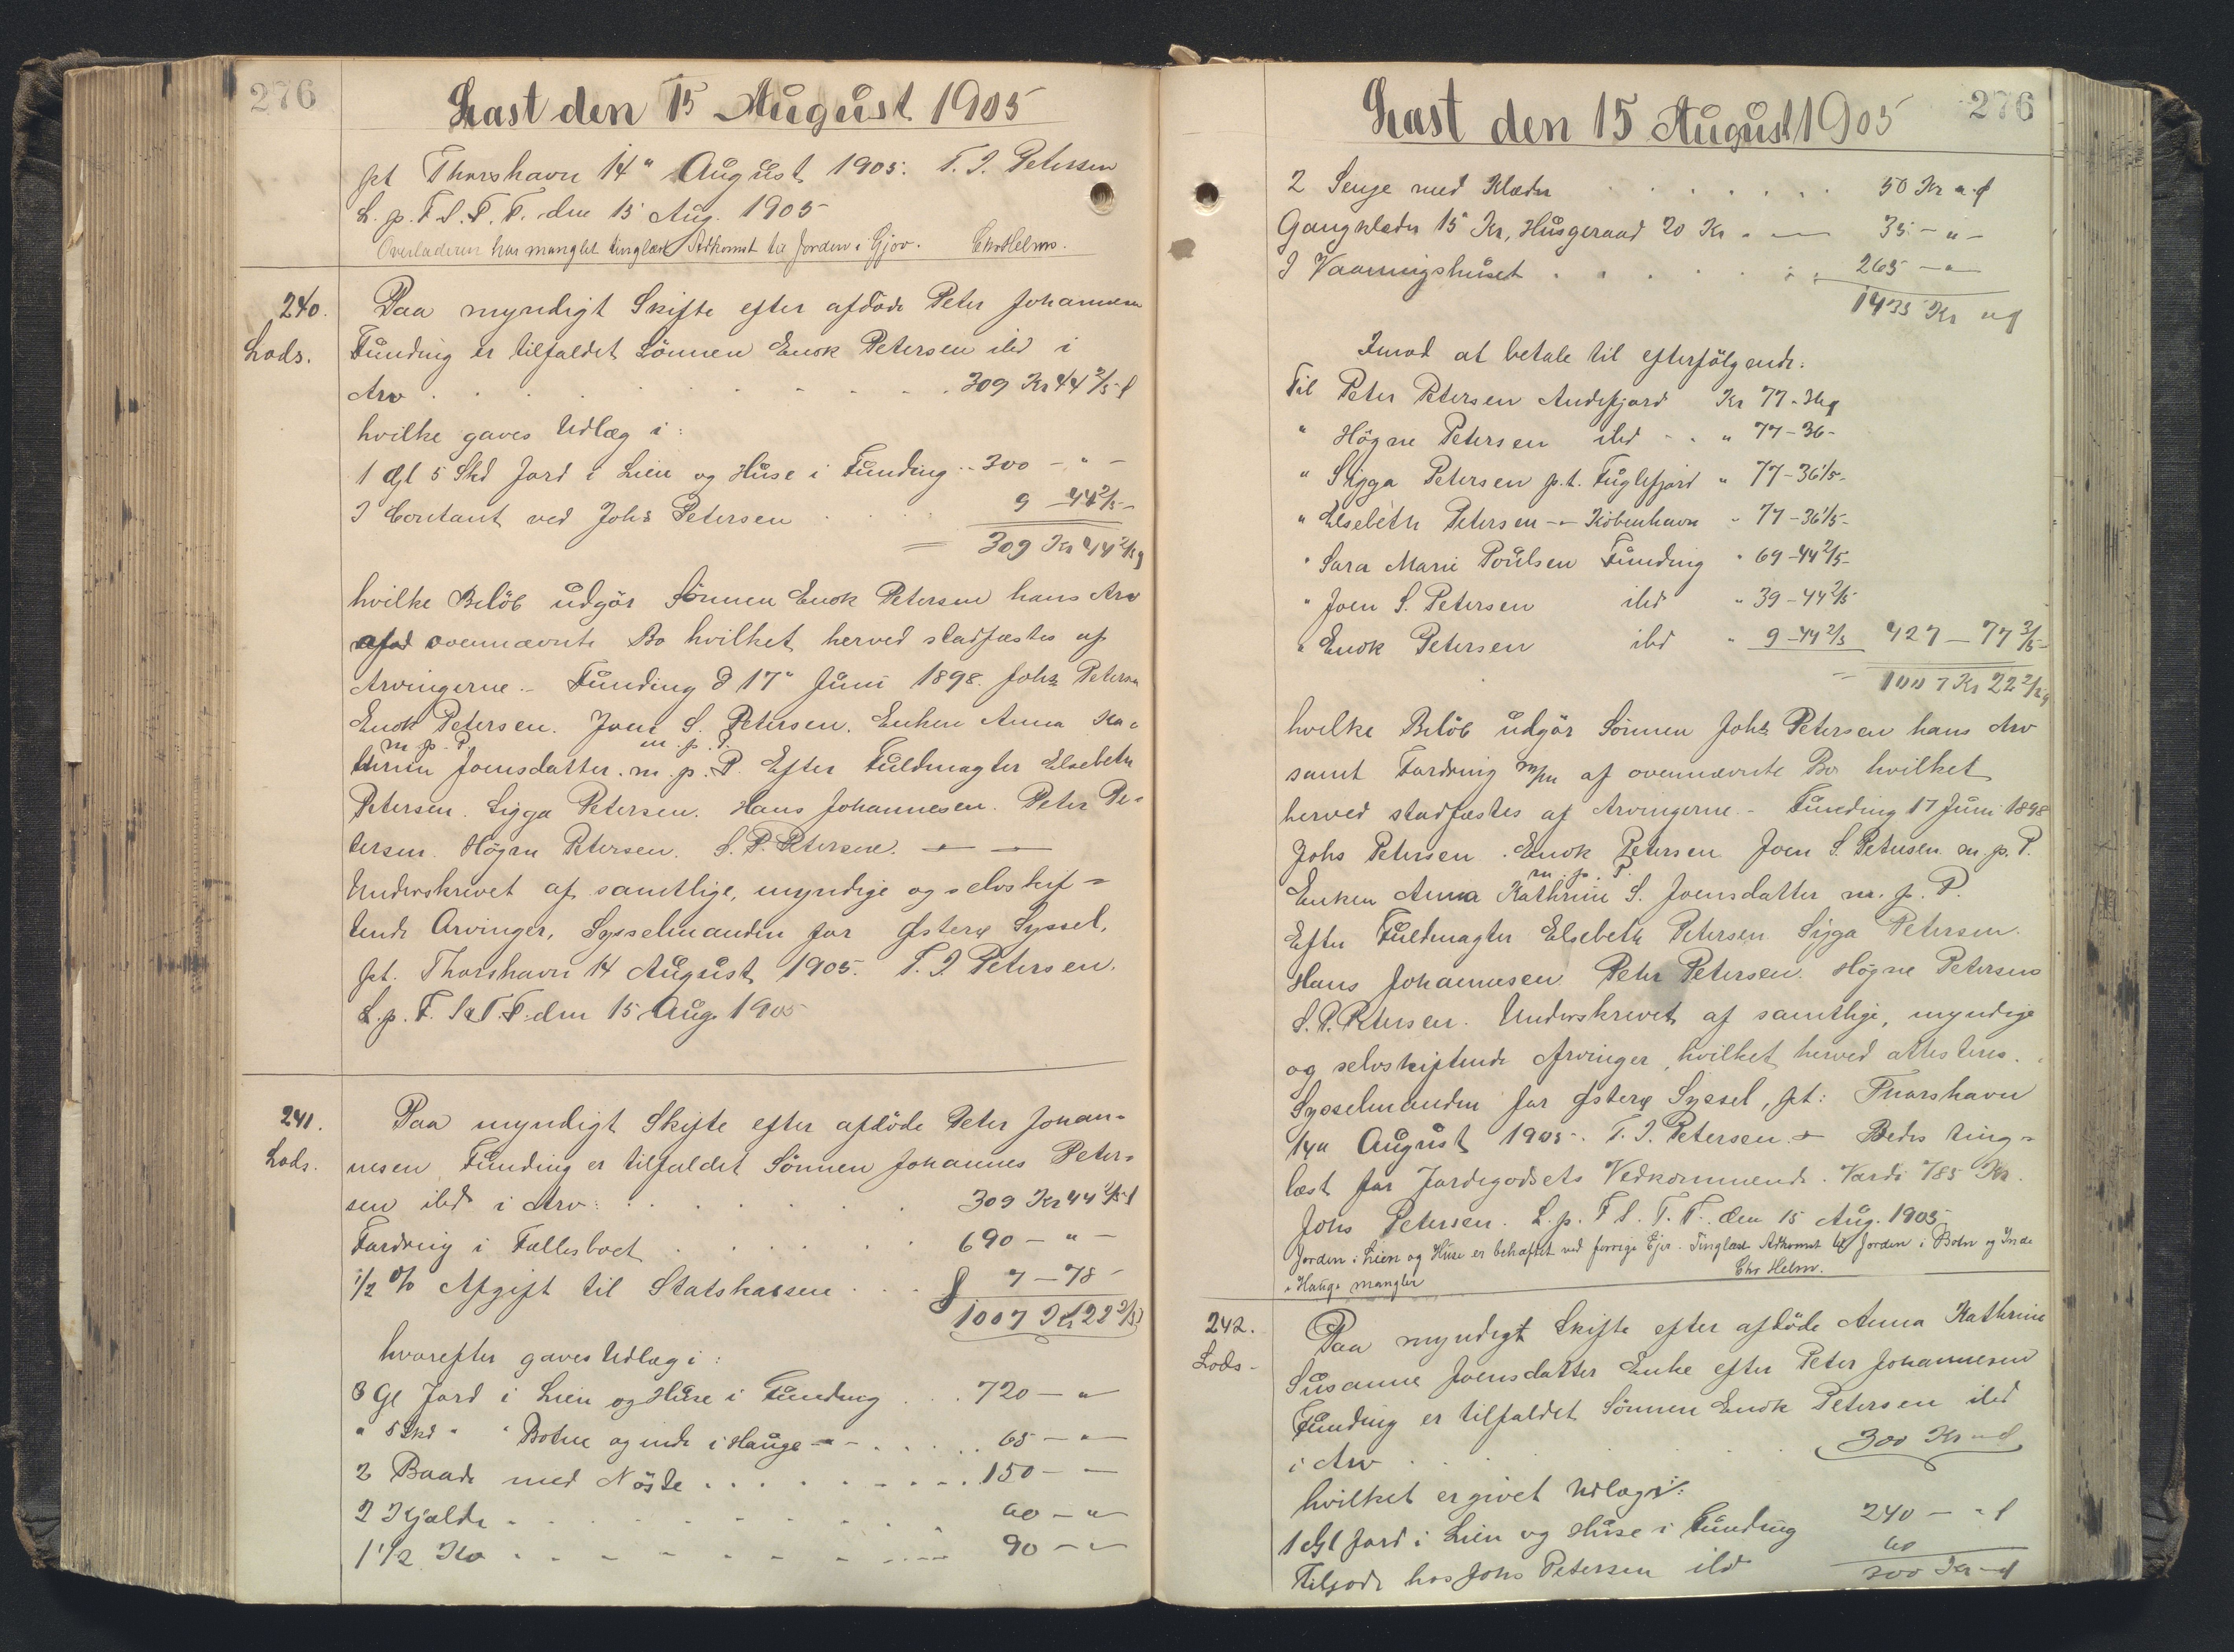 276
Læst den 15 August 1905
pt Thorshavn 14" August 1905. T. J. Petersen
L. p. F. S. T. F. den 15 Aug. 1905
Overladeren har manglet tinglæst Adkomst til Jorden i Gjov. Chr Helm.
240.
Lods.
Paa myndigt Skifte efter afdöde Peter Johannesen
Funding er tilfaldet Sönnen Enok Petersen ibd i
Arv . . . . . . . 309 Kr 44 2/5 f
hvilke gaves Udlæg i:
1 Gl 5 Skd Jord i Lien og Huse i Funding .. 300 - " -
I Contant ved Johs Petersen . . . 9 - 44 2/5 -
= 309 Kr 44 2/5 f
hvilke Belöb udgör Sönnen Enok Petersen hans Arv
af ovennævnte Bo hvilket herved stadfæstes af
Arvingerne. - Funding d 17" Juni 1898. Johs Petersen
Enok Petersen. Joen S. Petersen. Enken Anna Ka=
m. p. P. m. p. P.
thrine Joensdatter. m. p. P. Efter Fuldmagter Elsebeth
Petersen. Sigga Petersen. Hans Johannesen. Peter Pe=
tersen. Högne Petersen. S. P. Petersen. — —
Underskrevet af samtlige, myndige og selvskif=
tende Arvinger, Sysselmanden for Österø Syssel,
pt. Thorshavn 14 August 1905. T. J. Petersen.
L. p. F. S. T. F. den 15 Aug. 1905
241.
Lods.
Paa myndigt Skifte efter afdöde Peter Johan=
nesen Funding er tilfaldet Sönnen Johannes Peter=
sen ibd i Arv: . . . . . 309 Kr 44 2/5 f
Fordring i Fællesboet . . . . . 690 - " -
1/2 % Afgift til Statskassen . . . 7 - 78 -
1007 Kr 22 2/5
hvorefter gaves Udlæg i:
3 Gl Jord i Lien og Huse i Funding . . . 720 - "
" 5 Skd " " Botne og inde i Hauge - - . . . . 65 - "
2 Baade med Nöste . . . . . . . . . 150 - -
2 Kjælde . . . . . . . . 60 - "
1 1/2 Ko . . . . . . . . 90 - "
Læst den 15 August 1905
276
2 Senge med Klæder . . . . . . . 50 Kr " f
Gangklæder 15 Kr, Husgeraad 20 Kr . — 35 - " -
I Vaaningshuset . . . . . . . 265 - "
1435 Kr " f
Imod at betale til efterfölgende:
Til Peter Petersen Andefjord Kr 77 - 36
" Högne Petersen ibd - . " 77 - 36 -
" Sigga Petersen p.t. Fuglefjord " 77 - 36 1/5 -
" Elsebeth Petersen - " - Köbenhavn " 77 - 36 1/5 -
" Sara Marie Poulsen Funding " 69 - 44 2/5 -
" Joen S. Petersen ibd " 39 - 44 2/5
" Enok Petersen ibd " 9 - 44 2/5 427 - 77 3/5 -
= 1007 Kr 22 2/5
hvilke Belöb udgör Sönnen Johs Petersen hans Arv
samt Fordring m/m af ovennævnte Bo hvilket
herved stadfæstes af Arvingerne. - Funding 17 Juni 1898
Johs Petersen. Enok Petersen. Joen S. Petersen m. p. P.
m. p. P.
Enken Anna Kathrine S. Joensdatter m. p. P.
Efter Fuldmagter Elsebeth Petersen Sigga Petersen.
Hans Johannesen. Peter Petersen. Högne Petersen
S. P. Petersen. Underskrevet af samtlige, myndige
og selvskiftende Arvinger, hvilket herved attesteres.
Sysselmanden for Österø Syssel, pt: Thorshavn
14" August 1905. T. J. Petersen. — Bedes ting=
læst for Jordegodsets Vedkommende. Værdi 785 Kr.
Johs Petersen. L. p. F. S. T. F. den 15 Aug. 1905
Jorden i Lien og Huse er behæftet ved forrige Ejer. Tinglæst Adkomst til Jorden i Botn og Inde
i Hauge mangler Chr Helm.
242.
Lods -
Paa myndigt Skifte efter afdöde Anna Kathrine
Susanne Joensdatter Enke efter Peter Johannesen
Funding er tilfaldet Sönnen Enok Petersen ibd
i Arv . . . . 300 Kr " f
hvilket er givet Udlæg i:
1 Gl Jord i Lien og Huse i Funding 240 - " f
Tilgode hos Johs Petersen ibd 60
300 Kr - f